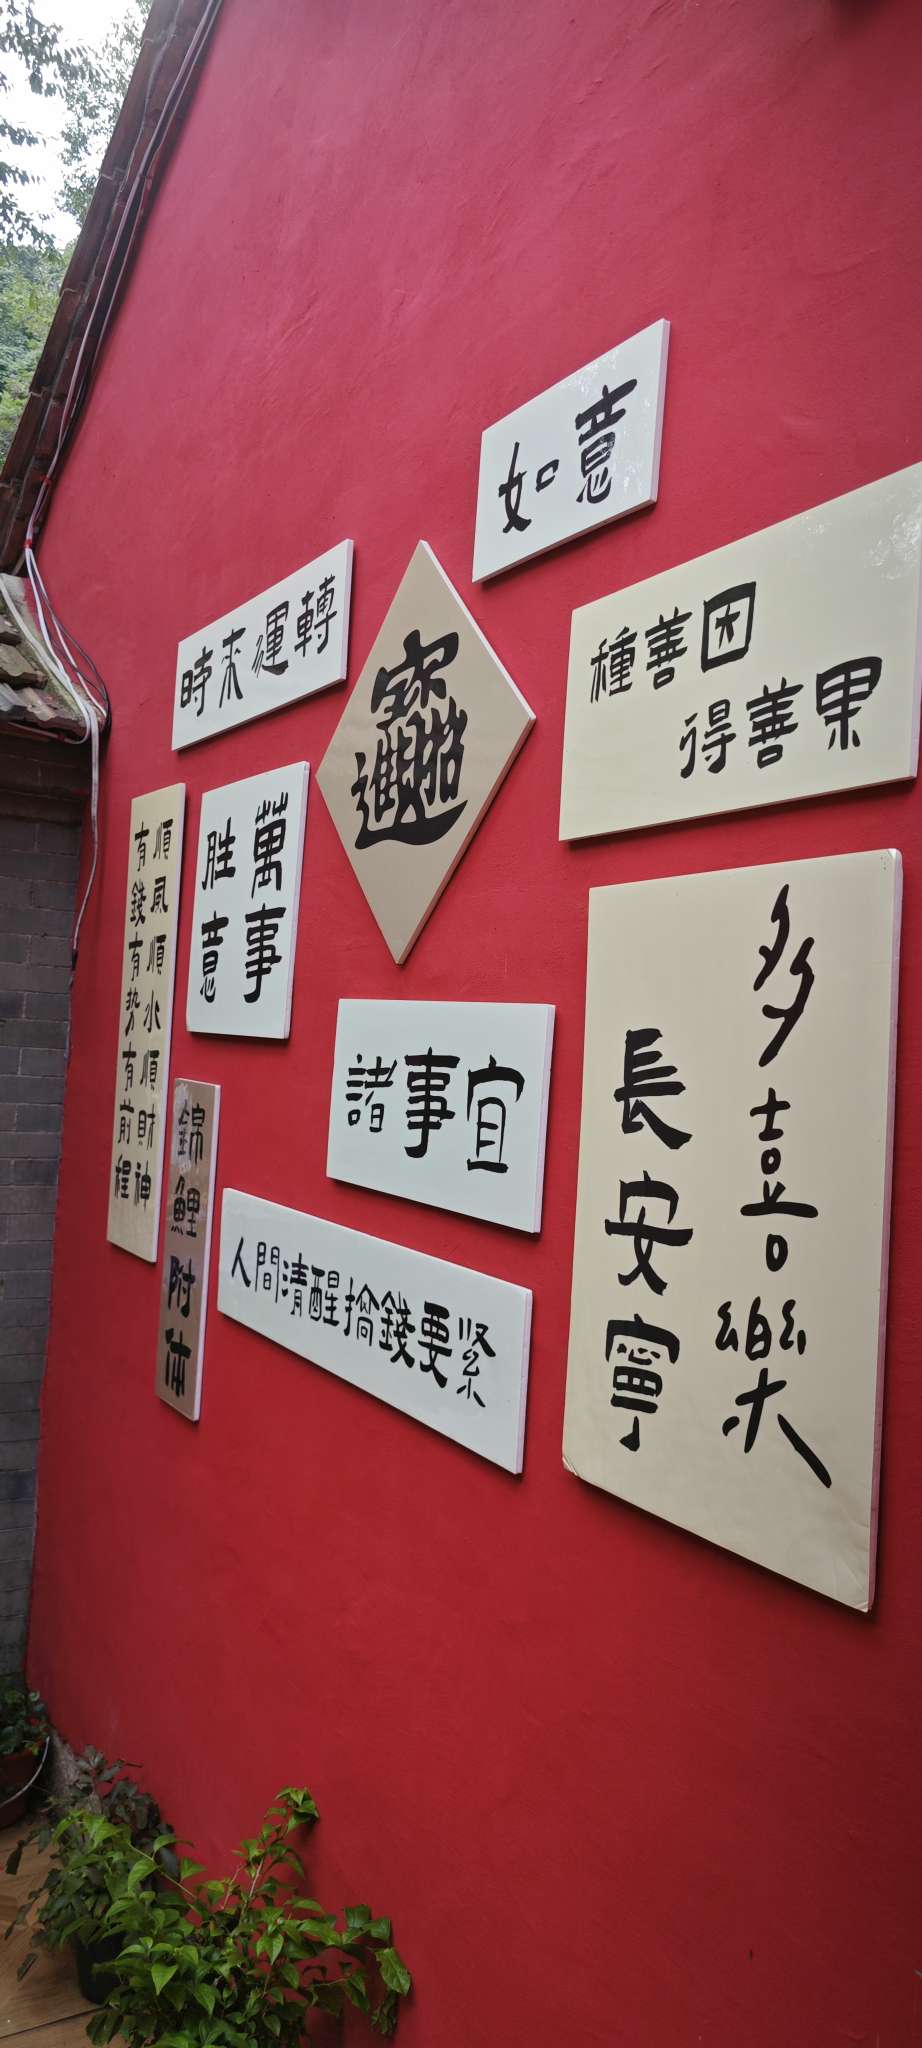 如意
時來運轉
招財進寶
種善因
得善果
順風順水順財神
有錢有勢有前程
萬事
胜意
諸事宜
多喜樂
長安寧
錦鯉附体
人間清醒搞錢要紧